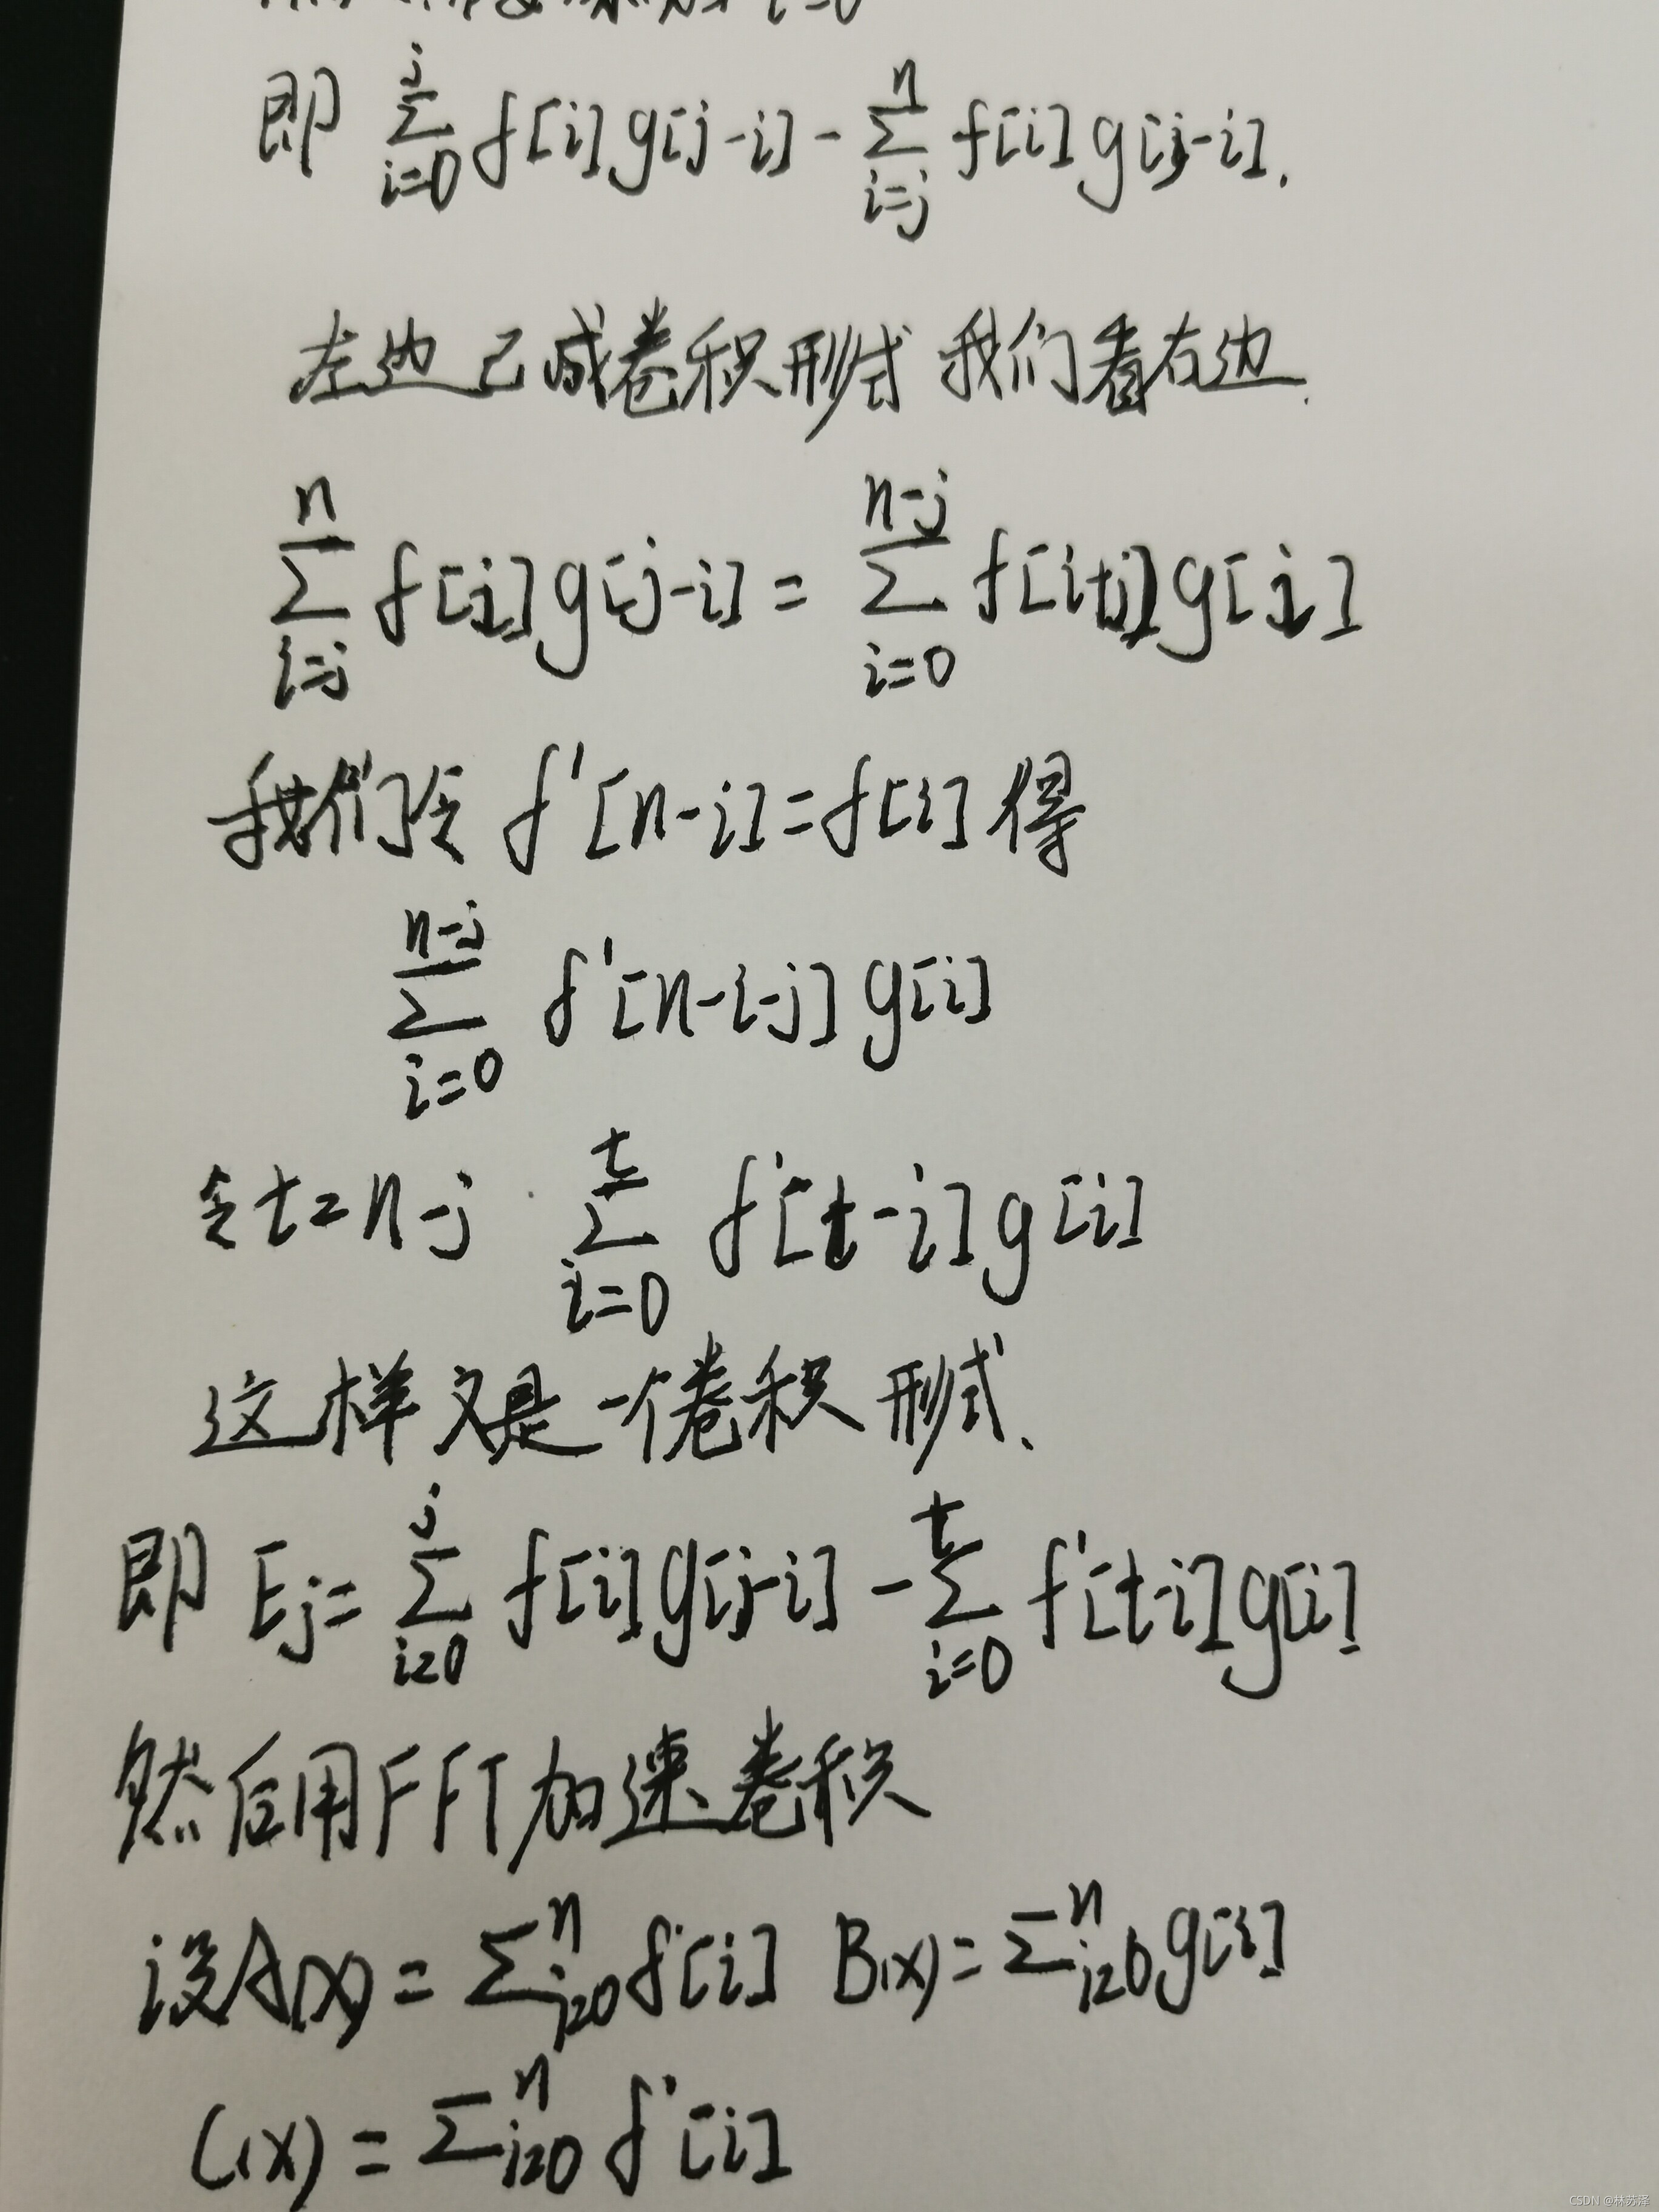 i=0
即 \sum_{i=0}^{j} f[i]g[j-i] - \sum_{i=j}^{n} f[i]g[j-i].
左边已成卷积形式 我们看右边.
\sum_{i=j}^{n} f[i]g[j-i] = \sum_{i=0}^{n-j} f[i+j]g[i]
我们令 f'[n-i]=f[i] 得
\sum_{i=0}^{n-j} f'[n-i-j]g[i]
令t=n-j \sum_{i=0}^{t} f'[t-i]g[i]
这样又是一个卷积形式、
即 Ej= \sum_{i=0}^{j} f[i]g[j-i] - \sum_{i=0}^{t} f'[t-i]g[i]
然后用FFT加速卷积
设A(x) = \sum_{i=0}^{n} f[i] B(x) = \sum_{i=0}^{n} g[i]
C(x) = \sum_{i=0}^{n} f'[i]
CSDN @林苏泽